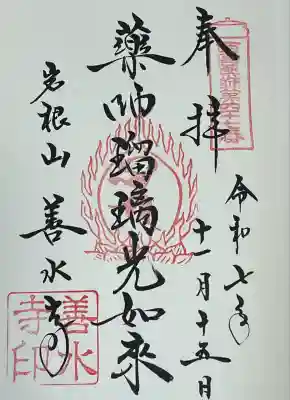 奉拝
令和七年
十一月十五日
藥師瑠璃光如来
岩根山
善水寺
善水
寺印